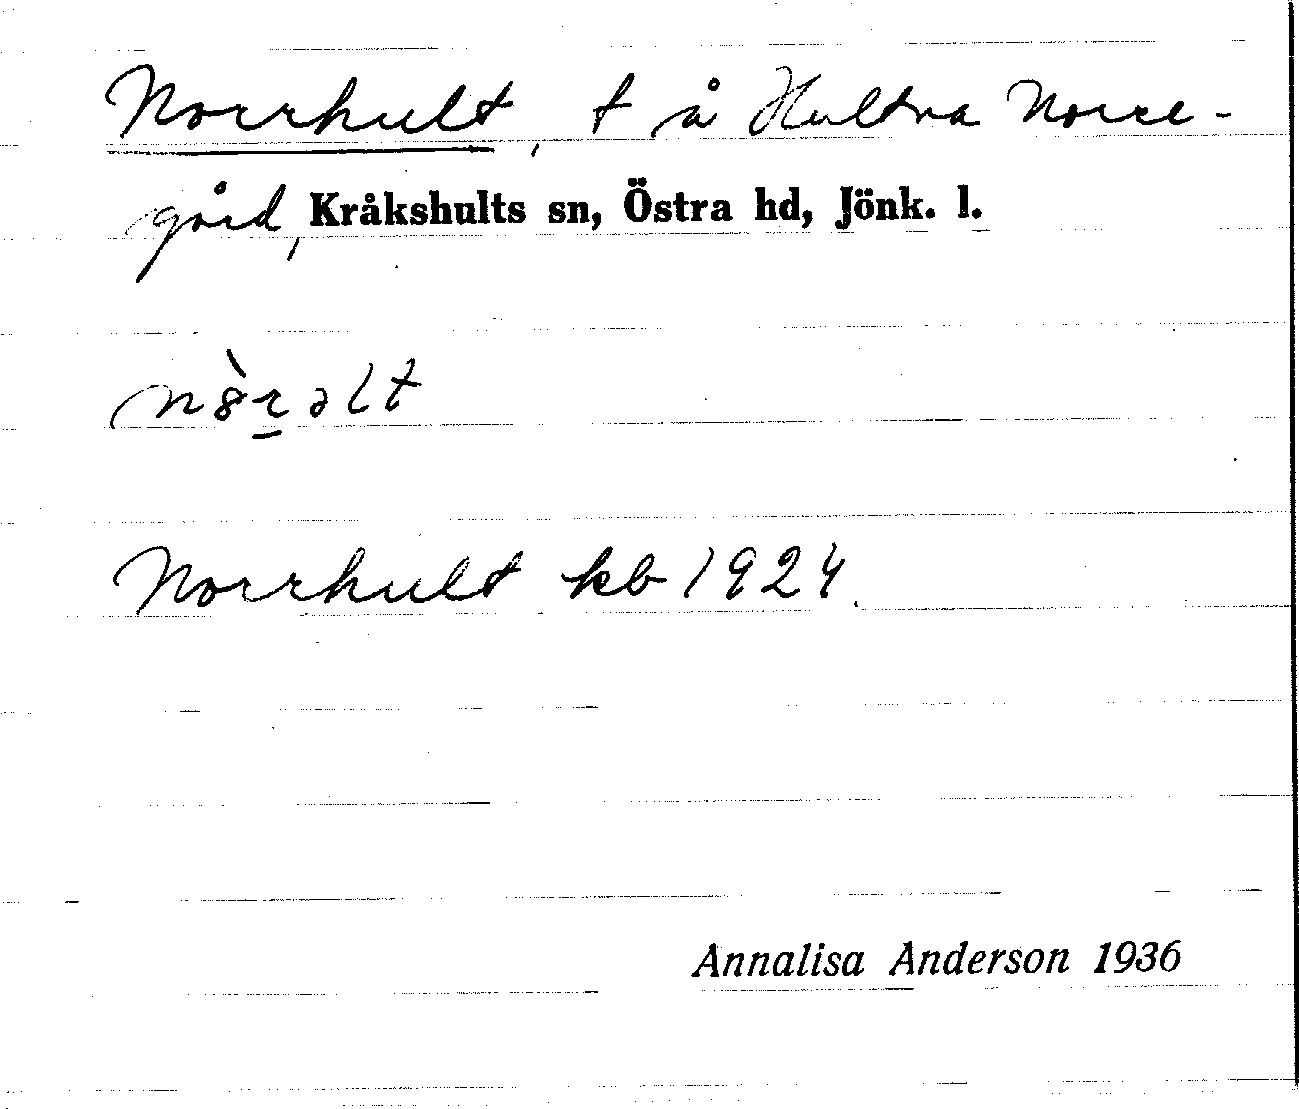 Norrhult, t å Hultna Norre-
gård, Kråkshults sn, Östra hd, Jönk. l.
nòrəlt
Norrhult kb 1924.
Annalisa Anderson 1936